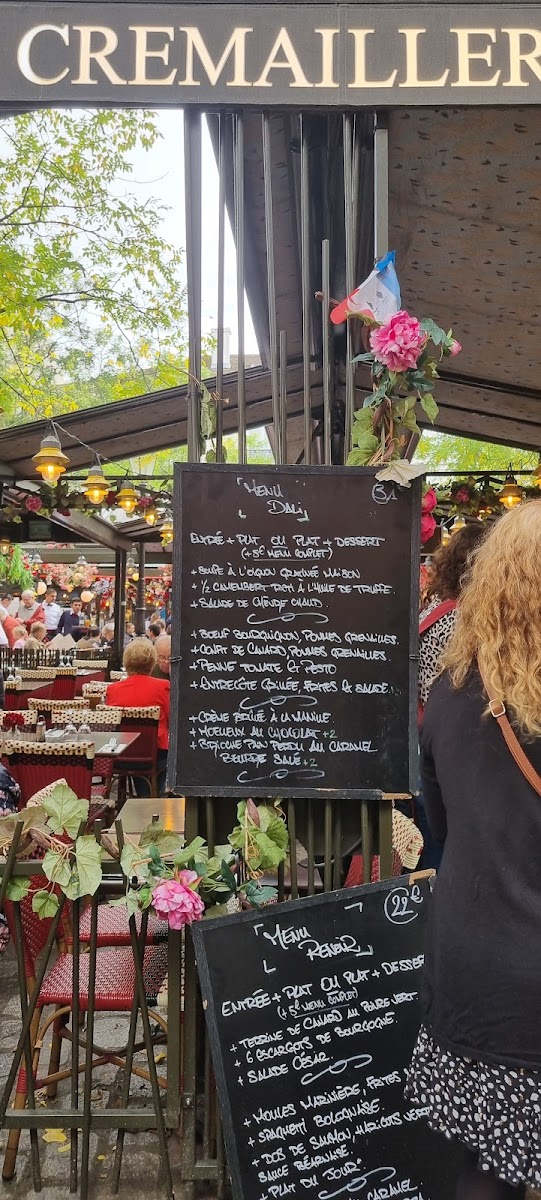 CREMAILLER
MENU
DALI
31
ENTRÉE + PLAT OU PLAT + DESSERT
(+5€ MENU COMPLET)
+ SOUPE À L'OIGNON GRATINÉE MAISON
+ 1/2 CAMEMBERT ROTI À L'HUILE DE TRUFFE.
+ SALADE DE CHÈVRE CHAUD.
+ BOEUF BOURGUIGNON, POMMES GRENAILLES.
+ CONFIT DE CANARD, POMMES GRENAILLES.
+ PENNE TOMATE & PESTO
+ ENTRECÔTE GRILLÉE, FRITES & SALADE.
+ CRÈME BRÛLÉE À LA VANILLE.
+ MOELLEUX AU CHOCOLAT +2
+ BRIOCHE PAIN PERDU AU CARAMEL
BEURRE SALÉ +2
22€
MENU
RENOIR
ENTRÉE + PLAT OU PLAT + DESSER
(+5€ MENU COMPLET)
+ TERRINE DE CANARD AU POIVRE VERT.
+ 6 ESCARGOTS DE BOURGOGNE.
+ SALADE CÉSAR.
+ MOULES MARINIÈRE, FRITES
+ SPAGHETTI BOLOGNAISE.
+ DOS DE SAUMON, HARICOTS VERT
SAUCE BÉARNAISE.
+ PLAT DU JOUR
CARAMEL